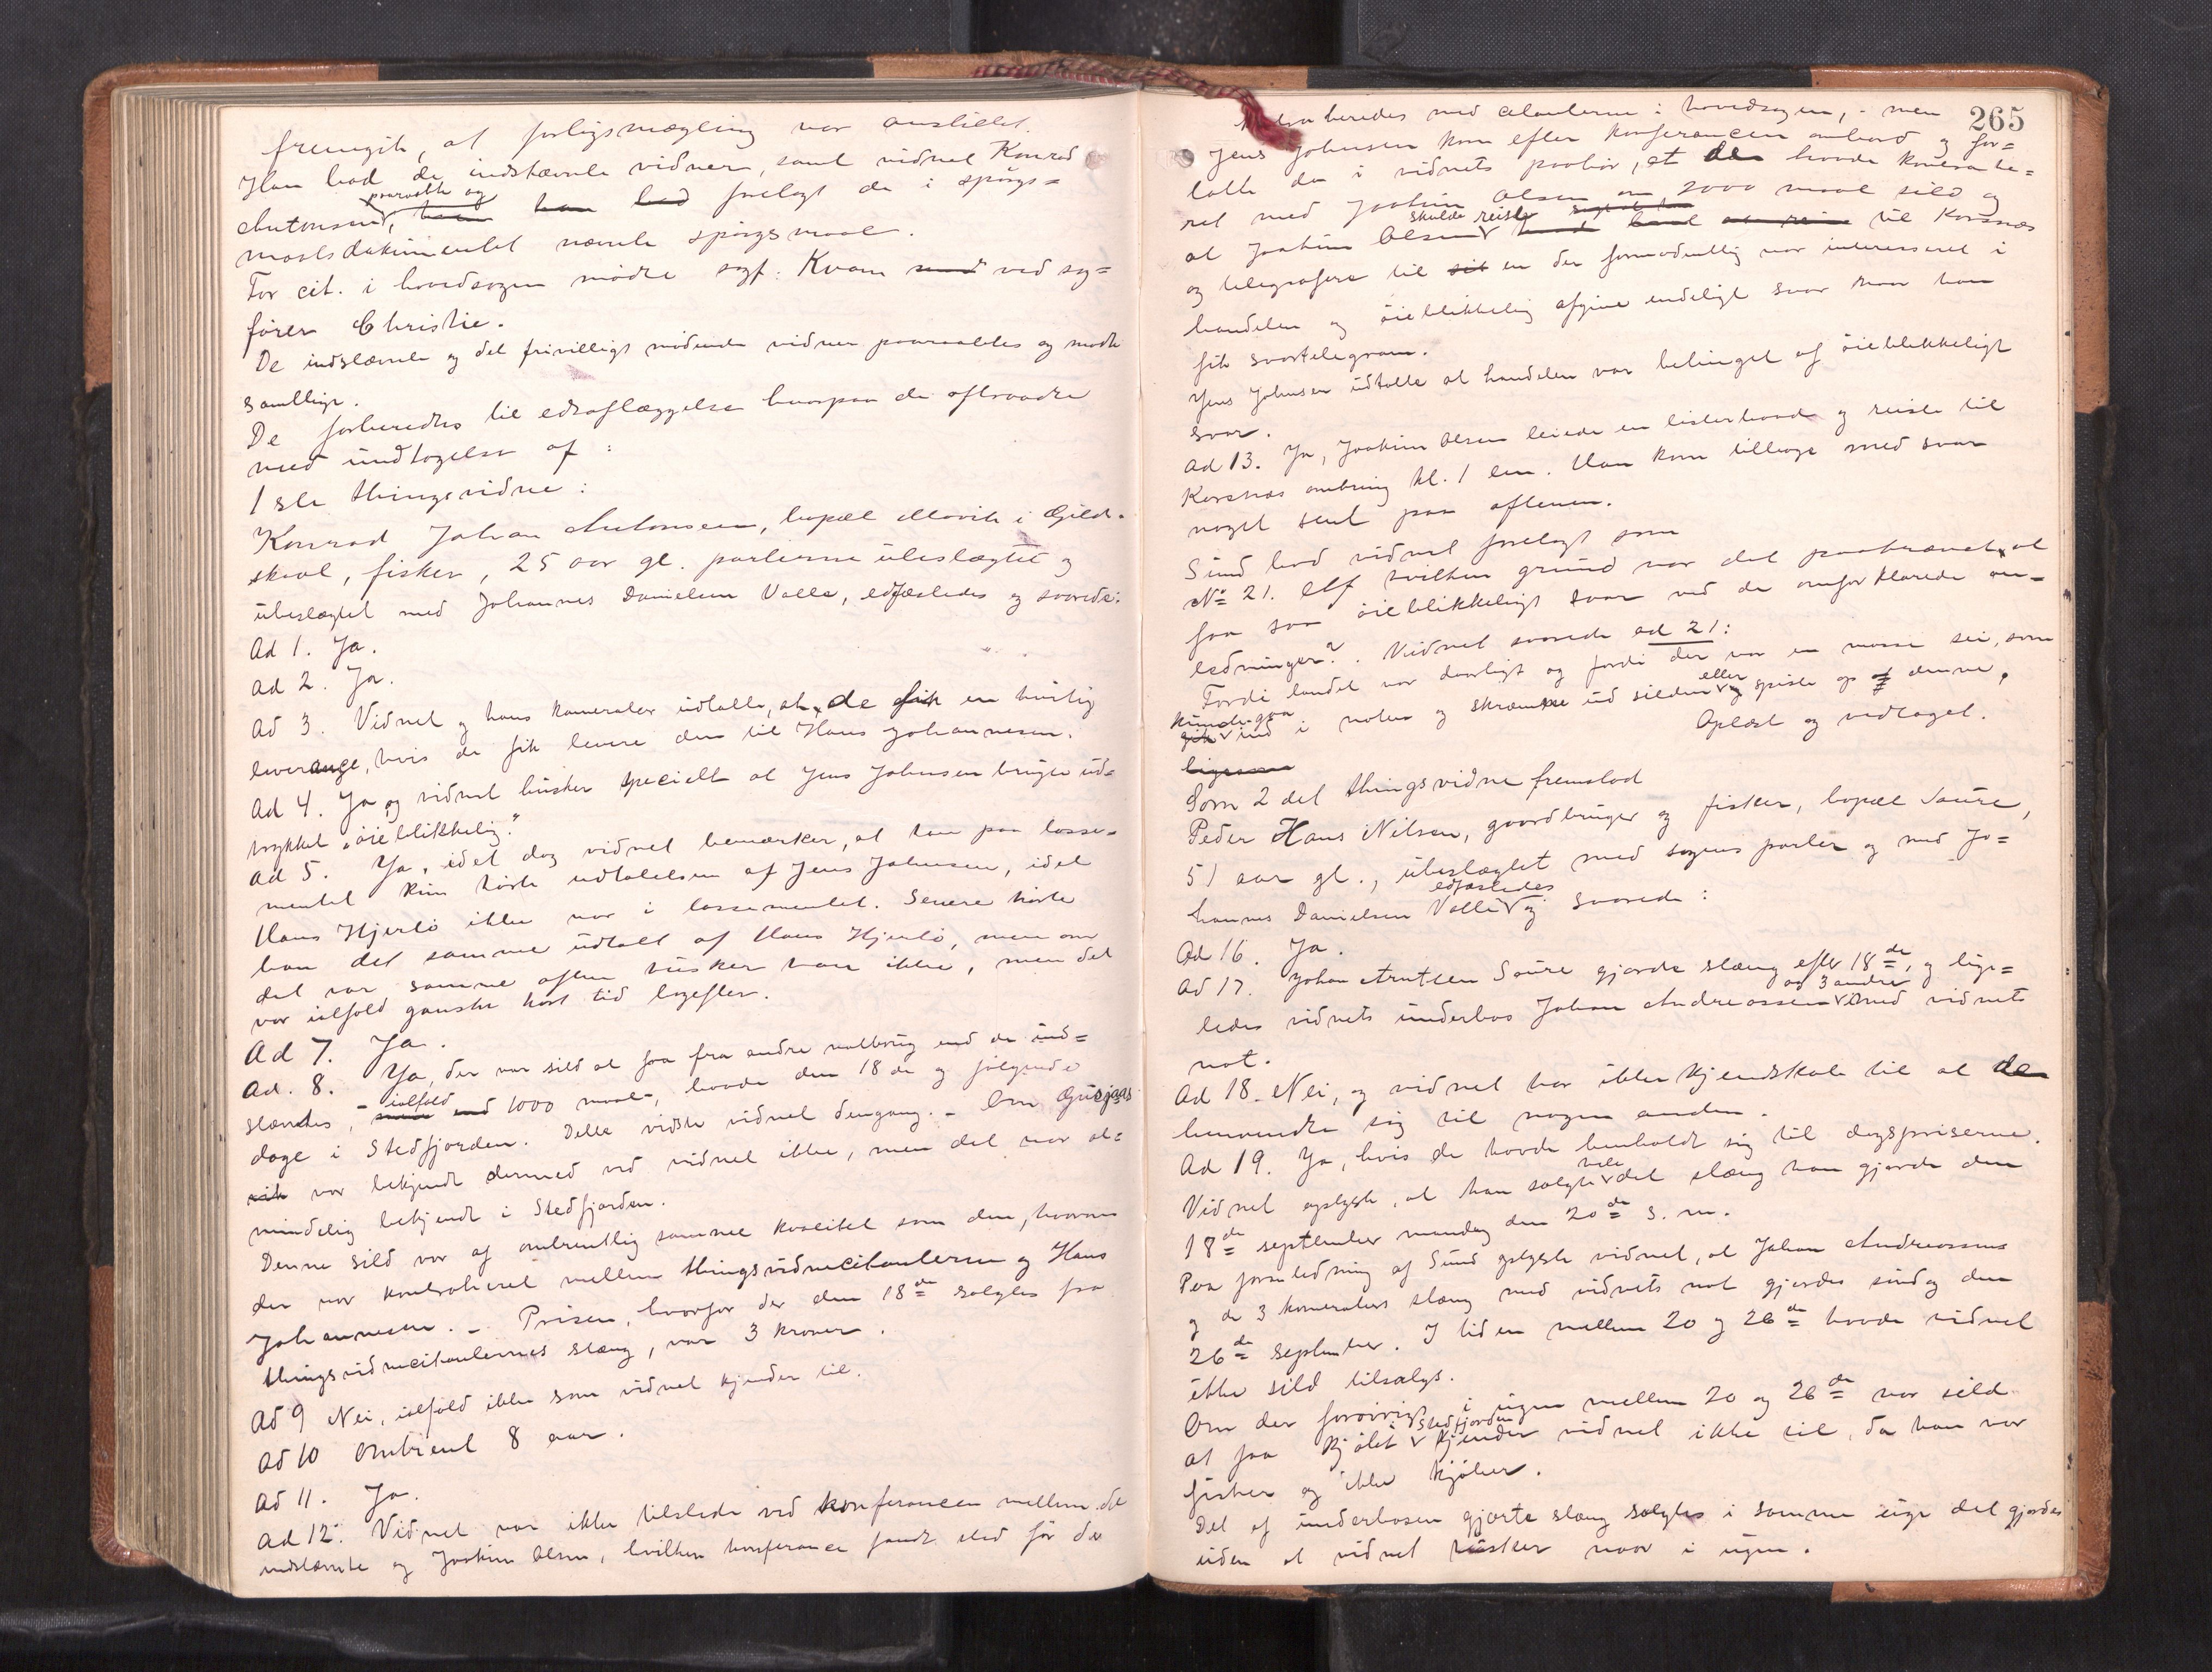 fremgik, at forligsmægling var anstillet.
Han bad de indstævnte vidner, samt vidnet Konrad
paaraabt og
Antonsen, han bad forelagt de i spørgs=
maalsdokumentet nævnte spørgsmaal.
For cit. i hovedsagen mødte sagf. Kvam med ved sag=
fører Christie.
De indstævnte og det frivilligt mødende vidner paaraabtes og mødte
samtlige.
De forberedtes til edsaflæggelse hvorpaa de aftraadte
med undtagelse af:
1ste thingsvidne:
Konrad Johan Antonsen, bopæl Mevik i Gilde-
skaal, fisker, 25 aar gl. parterne ubeslægtet og
ubeslægtet med Johannes Danielsen Valle, edfæstedes og svarede:
Ad 1. Ja.
Ad 2. Ja.
Ad 3. Vidnet og hans kamerater udtalte, at de fik en hurtig
leverange, hvis de fik levere den til Hans Johannesen.
Ad 4. Ja, og vidnet husker specielt at Jens Johnsen brugte ud-
trykket "øieblikkelig".
Ad 5. Ja, idet dog vidnet bemærker, at han paa losse-
mentet kun hørte udtalelsen af Jens Johnsen, idet
Hans Hjertø ikke var i lossementet. Senere hørte
han det samme udtalt af Hans Hjertø, men om
det var samme aften husker han ikke, men det
var ialfald ganske kort tid bagefter.
Ad 7. Ja.
Ad. 8. Ja, der var sild at faa fra andre notbrug end de ind=
ialfald
stævntes, - men end 1000 maal -, baade den 18de og følgende
dage i Stedfjorden. Dette vidste vidnet dengang. - Om Gusjaas
vik var bekjendt dermed ved vidnet ikke, men det var al=
mindelig bekjendt i Stedfjorden.
Denne sild var af omtrentlig samme kvalitet som den, hvorom
der var kontraheret mellem thingsvidnecitanterne og Hans
Johannesen. - Prisen, hvorfor der den 18de solgtes fra
thingsvidnecitanternes stæng, var 3 kroner.
Ad 9 Nei, ialfald ikke som vidnet kjender til.
Ad 10 Omtrent 8 aar.
Ad 11. Ja.
Ad 12. Vidnet var ikke tilstede ved konferancen mellem de
indstævnte og Joakim Olsen, hvilken konferance fandt sted før der
265
kontraheredes med citanterne i hovedsagen, - men
Jens Johnsen kom efter konferancen ombord og for=
talte da i vidnets paahør, at de havde konfera=
ret med Joakim Olsen om 2000 maal sild og
skulde reise
at Joakim Olsen havde til Korsnæs
og telegrafere til en der formodentlig var interesseret i
handelen og øieblikkelig afgive endeligt svar naar han
fik svartelegram.
Jens Johnsen udtalte at handelen var betinget af øieblikkeligt
svar.
Ad 13. Ja, Joakim Olsen leiede en listerbaad og reiste til
Korsnæs omkring kl. 1 em. Han kom tilbage med svar
noget sent paa aftenen.
Sund bad vidnet forelagt som
No 21. Af hvilken grund var det paakrævet, at
faa saa øieblikkeligt svar ved de omforklarede an-
ledninger? Vidnet svarede ad 21:
Fordi landet var daarligt og fordi der var en masse sei, som
kunde gaa eller
gik ind i noten og skræmme ud silden og spiste op af denne.
Oplæst og vedtaget.
ligesom
Som 2det thingsvidne fremstod
Peder Hans Nilsen, gaardbruger og fisker, bopæl Saure,
51 aar gl., ubeslægtet med sagens parter og med Jo=
edfæstedes
hannes Danielsen Valle og svarede:
Ad 16. Ja.
Ad 17. Johan Arntsen Saure gjorde stæng efter 18de, og lige=
og 3 andre
ledes vidnets underbas Johan Andreassen med vidnets
not.
Ad 18. Nei, og vidnet har ikke kjendskab til at de
henvendte sig til nogen anden.
Ad 19. Ja, hvis de havde henholdt sig til dagspriserne.
hele
Vidnet oplyste, at han solgte det stæng han gjorde den
18de september mandag den 20de s. m.
Paa foranledning af Sund oplyste vidnet, at Johan Andreassens
og de 3 kameraters stæng med vidnets not gjordes søndag den
26de september. I tiden mellem 20 og 26de havde vidnet
ikke sild tilsalgs.
Om der forøvrigt i ugen mellem 20 og 26de var sild
i Stedfjorden
at faa kjøbt kjender vidnet ikke til, da han var
fisker og ikke kjøber.
Det af underbasen gjorte stæng solgtes i samme uge det gjordes
uden at vidnet husker naar i ugen.